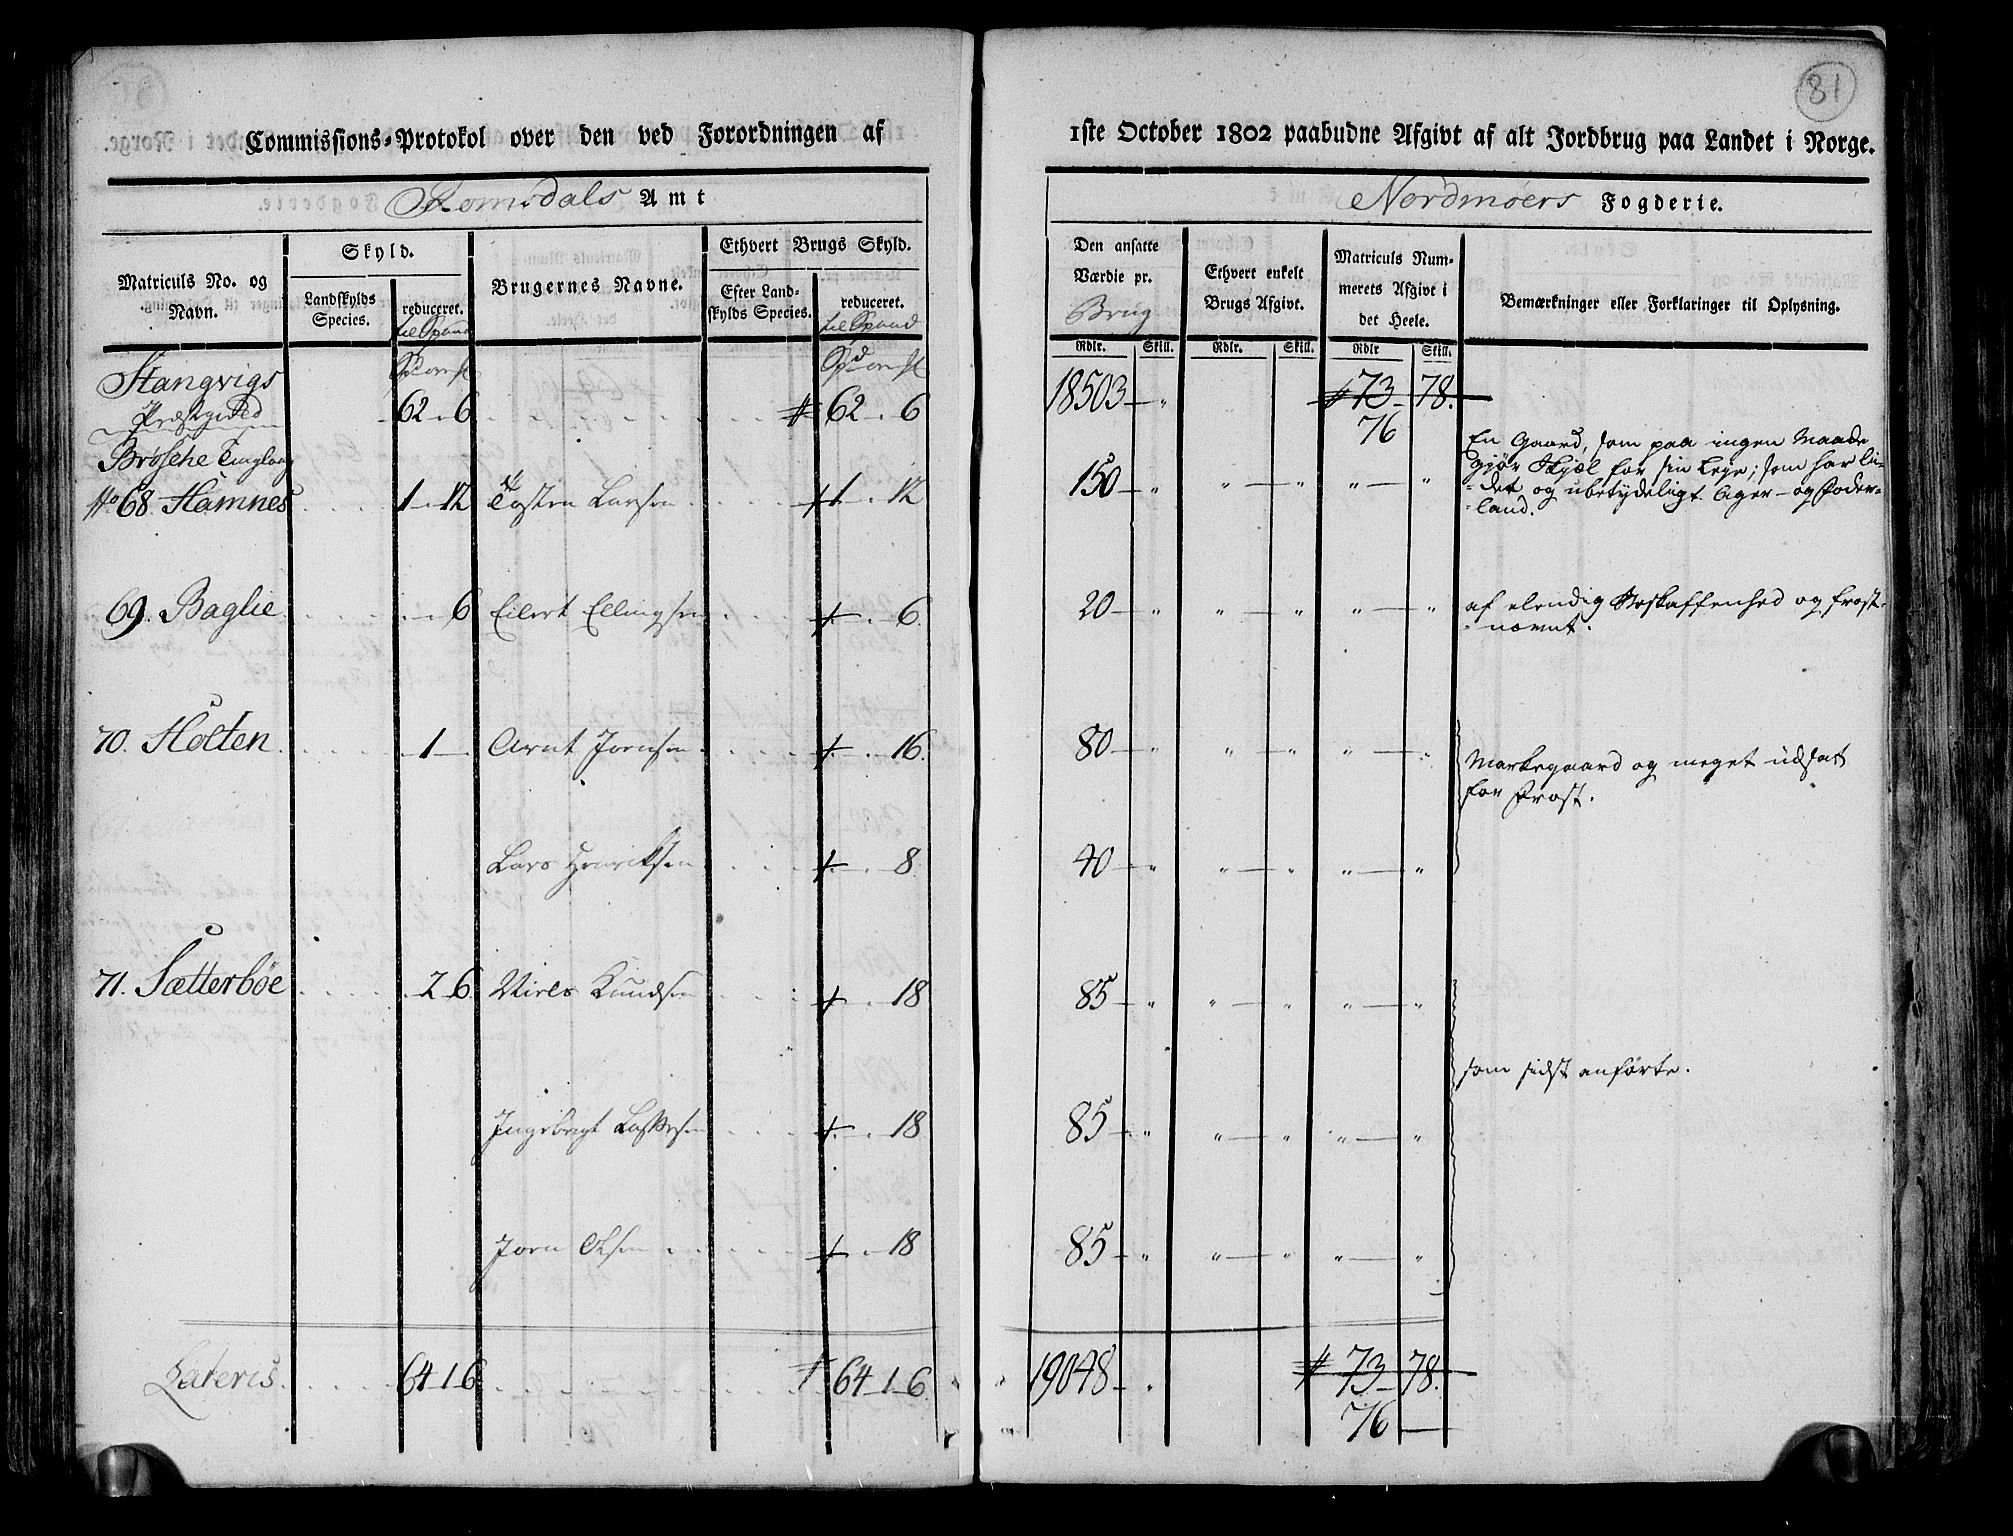 81
Commissions-Protokol over den ved Forordningen af 1ste October 1802 paabudne Afgivt af alt Jordbrug paa Landet i Norge.
Romsdals Amt
Nordmøers Fogderie.
Matriculs No. og Navn.
Skyld.
Landskylds Species.
reduceret.
til Spand
Brugernes Navne.
Ethvert Brugs Skyld.
Efter Landskylds Species.
reduceret.
til Spand
Den ansatte Værdie pr.
Brug
Ethvert enkelt Brugs Afgivt.
Matriculs Nummerets Afgivt i det Heele.
Bemærkninger eller Forklaringer til Oplysning.
Rdlr. Skill. Rdlr. Skill. Rdlr Skill.
Stangvigs
Præstegield 62 - 6 62 - 6 18503 - " 73 - 78.
76
Brøsche Tinglaug
No 68 Hamnes 1 - 12 Tosten Larsen 1 - 12 150 - " " - " " - "
En Gaard, som paa ingen Maade
gjør Skjæl for sin Leje; som har li-
det og ubetydeligt Ager- og Foder-
land.
69. Baglie 6 Eilert Ellingsen 6. 20 - " " - " " - "
af elendig Beskaffenhed og frost-
nævnt.
70. Holten 1 - Arnt Jornsen 16. 80 - " " - " " - "
Markegaard og meget udsat
for Frost.
Lars Henriksen 8. 40 - " " - " " - "
71. Sætterbøe 2 - 6 Niels Knudsen 18 85 - " " - " " - "
som sidst anførte.
Ingebrigt 18 85 - " " - " " - "
Jorn Olsen 18 85 - " " - " " - "
Lateris 64 1 - 6 64 - 1 - 6. 19048 - " 73 - 78.
76 -